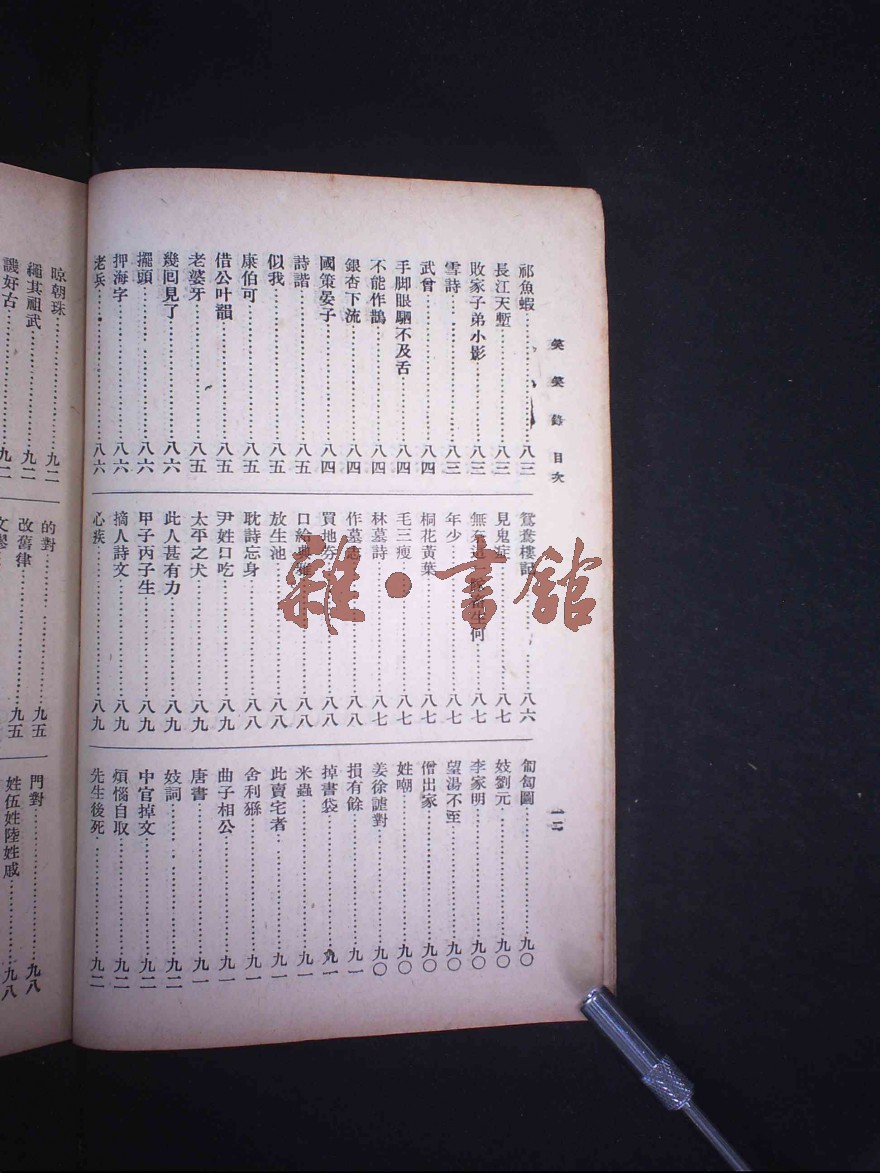 笑笑錄 目次
一二
祁魚蝦 八三
長江天塹 八三
敗家子弟小影 八三
雪詩 八三
武曾 八四
手脚眼駟不及舌 八四
不能作鵲 八四
銀杏下流 八四
國策晏子 八四
詩諧 八五
似我 八五
康伯可 八五
借公叶韻 八五
老婆牙 八五
幾囘見了 八六
擺頭 八六
押海字 八六
老兵 八六
鴛鴦樓記 八六
見鬼症 八七
無 這 生何 八七
年少 八七
桐花黃葉 八七
毛三瘦 八七
林墓詩 八七
作墓志 八八
買地券 八八
口給典雅 八八
放生池 八八
耽詩忘身 八八
尹姓口吃 八九
太平之犬 八九
此人甚有力 八九
甲子丙子生 八九
摘人詩文 八九
心疾 八九
匍匐圖 九〇
妓劉元 九〇
李家明 九〇
望湯不至 九〇
僧出家 九〇
姓嘲 九〇
姜徐謔對 九〇
損有餘 九一
掉書袋 九一
米蟲 九一
此賣宅者 九一
舍利猻 九一
曲子相公 九一
唐書 九一
妓詞 九二
中官掉文 九二
煩惱自取 九二
先生後死 九二
晾朝珠 九二
繩其祖武 九二
譏好古 九二
的對 九五
改舊律 九五
門對 九八
姓伍姓陸姓戚 九八
雜·書館